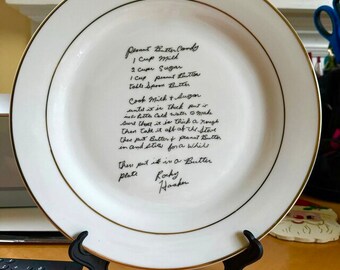 Peanut Butter Candy
1 Cup Milk
3 Cups Sugar
1 Cup Peanut Butter
table Spoon Butter
Cook Milk & Sugar
until it is thick put it
in a little Cold Water to Make
sure that it is thick a nough
then take it off of the Stove
then put Butter & Peanut Butter
in and stir for a while
then put it in a Butter
plate Rocky